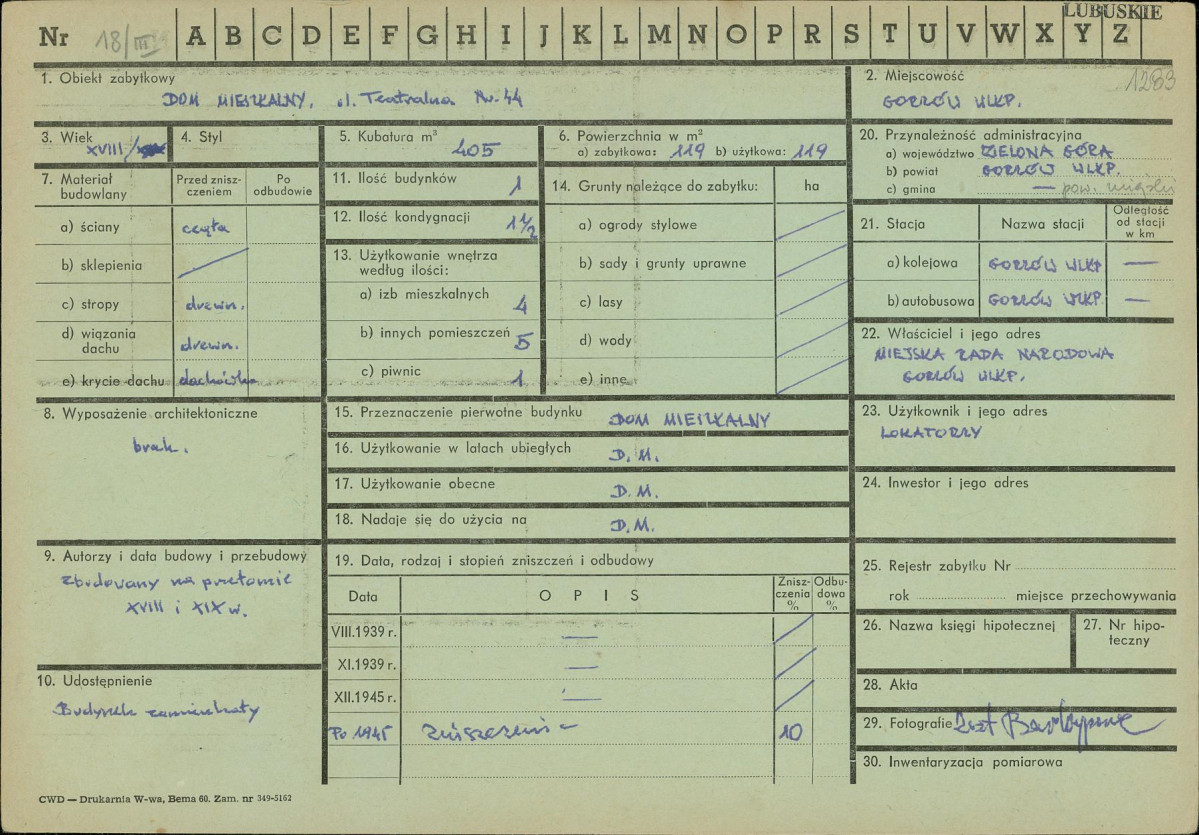 LUBUSKIE
Nr 18/III A B C D E F G H I J K L M N O P R S T U V W X Y Z
1. Obiekt zabytkowy
DOM MIESZKALNY, ul. Teatralna Nr. 44
2. Miejscowość 1283
GORZÓW WLKP.
3. Wiek
XVIII/XIX
4. Styl
5. Kubatura m³
405
6. Powierzchnia w m²
a) zabytkowa: 119 b) użytkowa: 119
7. Materiał budowlany
Przed znisz-
czeniem
Po
odbudowie
a) ściany cegła
b) sklepienia
c) stropy drewn.
d) wiązania
dachu drewn.
e) krycie dachu dachówka
8. Wyposażenie architektoniczne
brak.
9. Autorzy i data budowy i przebudowy
Zbudowany na przełomie
XVIII i XIX w.
10. Udostępnienie
Budynek zamieszkały
11. Ilość budynków 1
12. Ilość kondygnacji 1 1/2
13. Użytkowanie wnętrza
według ilości:
a) izb mieszkalnych 4
b) innych pomieszczeń 5
c) piwnic 1
14. Grunty należące do zabytku: ha
a) ogrody stylowe
b) sady i grunty uprawne
c) lasy
d) wody
e) inne
15. Przeznaczenie pierwotne budynku DOM MIESZKALNY
16. Użytkowanie w latach ubiegłych D.M.
17. Użytkowanie obecne D.M.
18. Nadaje się do użycia na D.M.
19. Data, rodzaj i stopień zniszczeń i odbudowy
Data OPIS Znisz-
czenia
% Odbu-
dowa
%
VIII.1939 r. —
XI.1939 r. —
XII.1945 r. —
Po 1945 zniszczenia 10
20. Przynależność administracyjna
a) województwo ZIELONA GÓRA
b) powiat GORZÓW WLKP.
c) gmina — pow. miejski
21. Stacja Nazwa stacji Odległość
od stacji
w km
a) kolejowa GORZÓW WLKP —
b) autobusowa GORZÓW WLKP. —
22. Właściciel i jego adres
MIEJSKA RADA NARODOWA
GORZÓW WLKP.
23. Użytkownik i jego adres
LOKATORZY
24. Inwestor i jego adres
25. Rejestr zabytku Nr
rok miejsce przechowywania
26. Nazwa księgi hipotecznej
27. Nr hipo-
teczny
28. Akta
29. Fotografie
30. Inwentaryzacja pomiarowa
CWD — Drukarnia W-wa, Bema 60. Zam. nr 349-5162